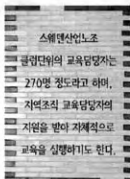 스웨덴산업노조
클럽단위의 교육담당자는
270명 정도라고 하며,
지역조직 교육담당자의
지원을 받아 자체적으로
교육을 실행하기도 한다.